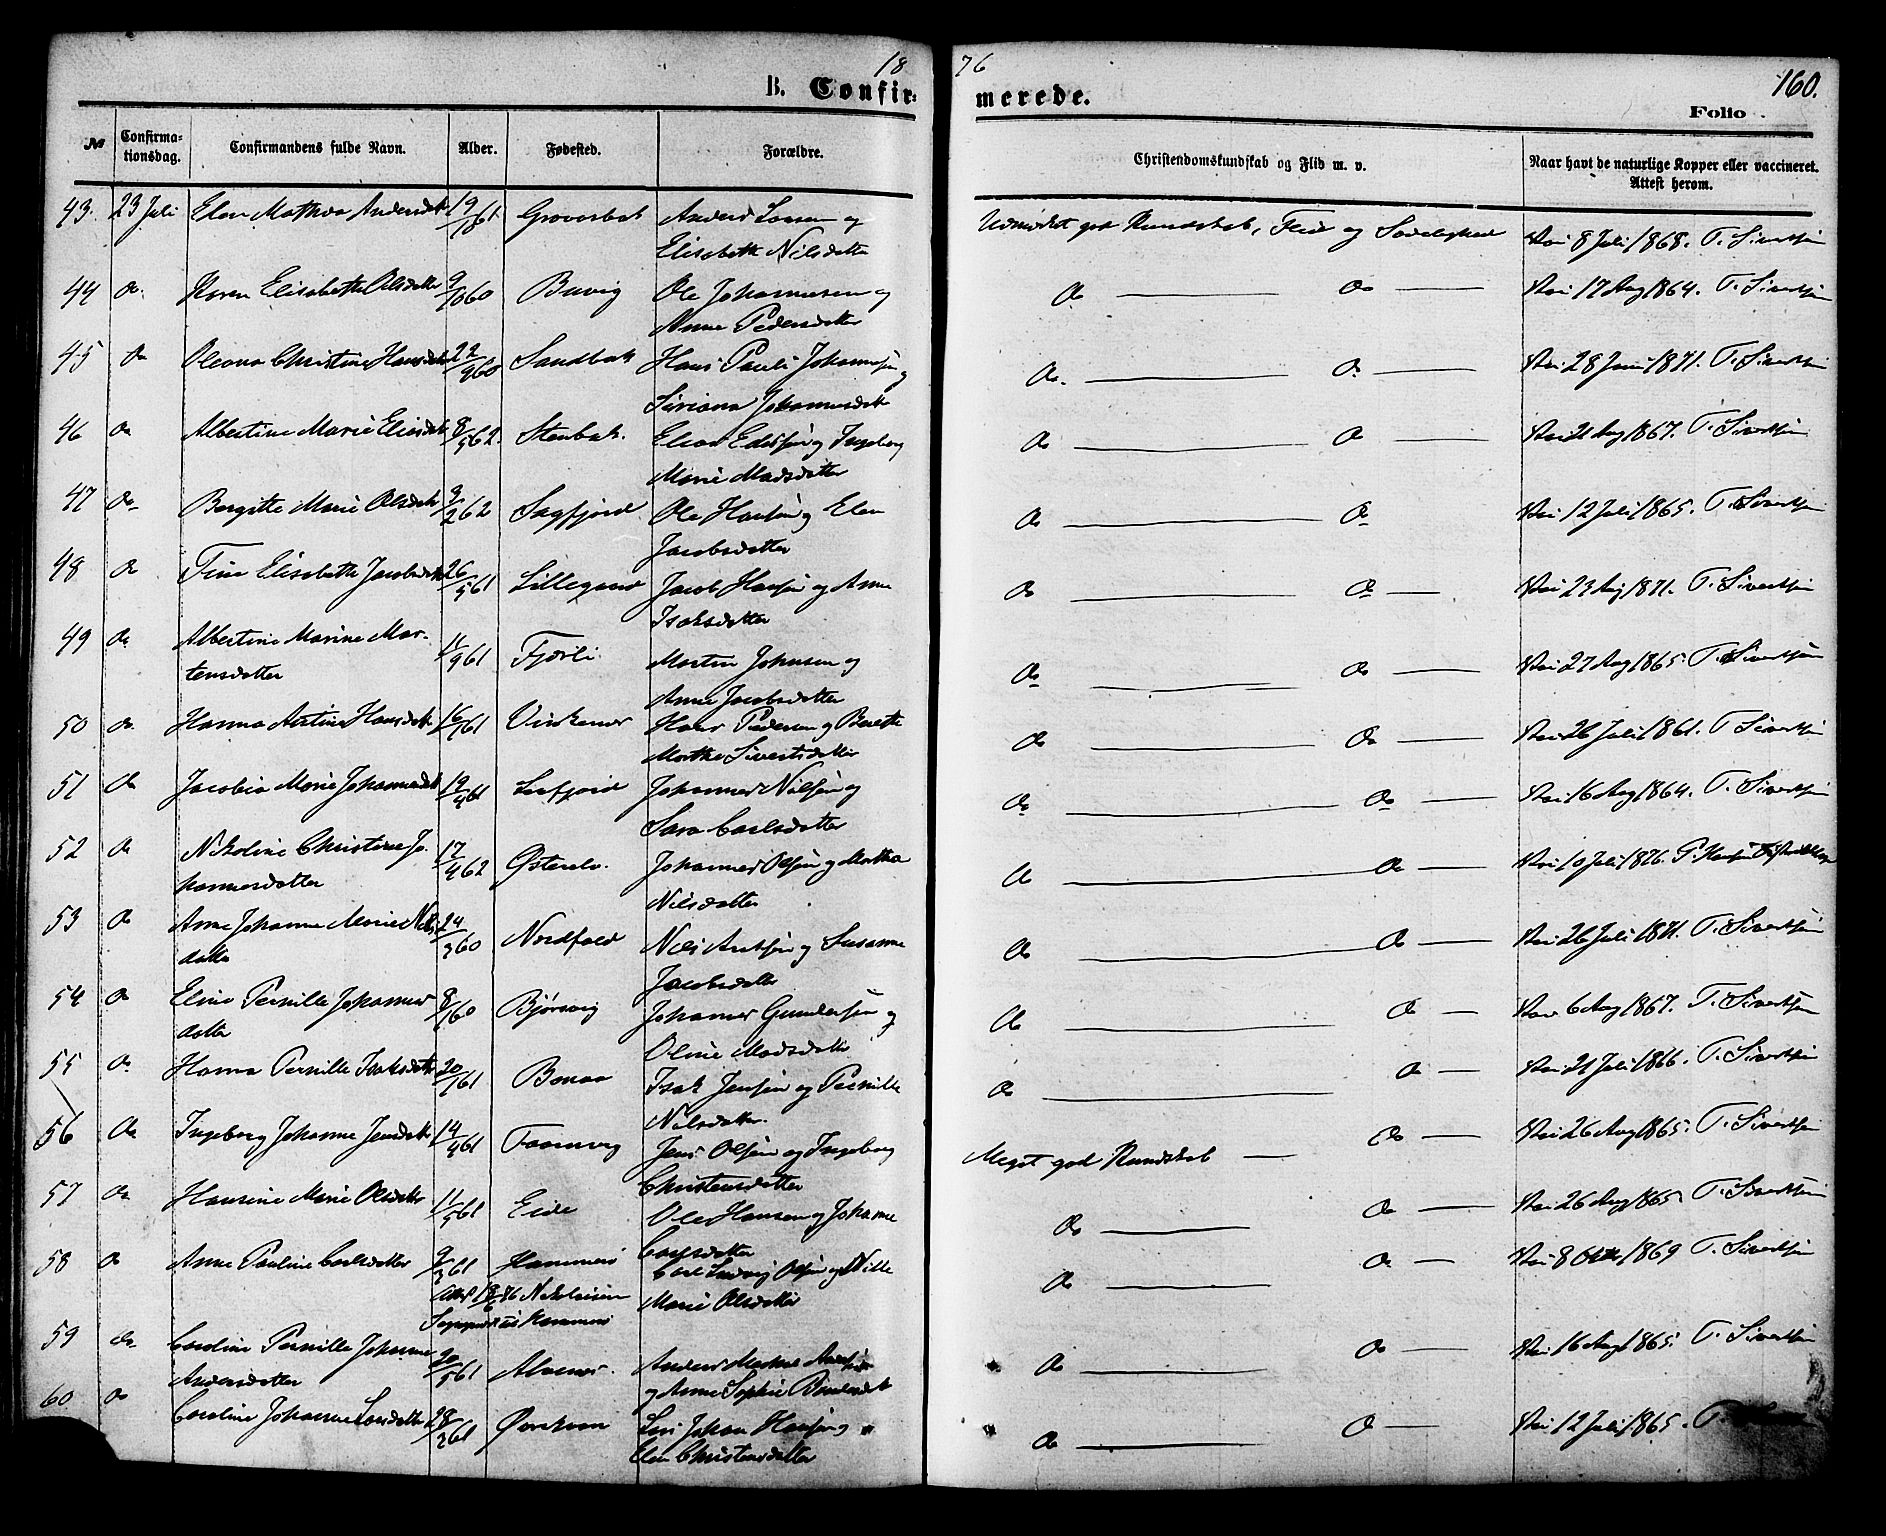 18 76
B. Confirmerede.
160.
Folio
№ Confirmationsdag. Confirmandens fulde Navn. Alder. Fødested. Forældre. Christendomskundskab og Flid m. v. Naar havt de naturlige Kopper eller vaccineret. Attest herom.
43. 23 Juli Elen Mathea Andersdt 19/8 61 Groverbak Anders Larsen og Udmerket god Kundskab, Flid og Sædelighed Vac: 8 Juli 1868. T. Sivertsen
Elisabeth Nilsdatter
44 do Karen Elisabeth Olsdatter 9/10 60 Buvig Ole Johannesen og do do Vac: 17 Aug 1864. T. Sivertsen
Anne Pedersdatter
45 do Oleana Christine Hansdt 22/9 60 Sandbak Hans Pauli Johannesen og do do Vac: 28 Juni 1871. T. Sivertsen
Siriana Johannesdt
46 do Albertine Marie Eliasdt 8/5 62. Stenbak. Elias Ingeborg do do Vac: 21 Aug 1867. T. Sivertsen
Marie Madsdatter
47 do Bergitte Marie Olsdatt 3/2 62 Sagfjord Ole Hansen og Elen do do Vac: 12 Juli 1865. T. Sivertsen
Jacobsdatter
48 do Tina Elisabeth Jacobsdt 26/5 61 Lillegaard Jacob Hansen og Anne do do Vac: 23 Aug 1871. T. Sivertsen
Isaksdatter
49 do Albertine Marine Mar-
tensdatter 11/9 61 Fjærli Martin Johnsen og do do Vac: 27 Aug 1865. T. Sivertsen
Anne Jacobsdatter
50 do Hanna Hansdt 16/ 61 Hans Pedersen og Berethe do do Vac: 26 Juli 1861. T. Sivertsen
Marthe Sivertsdatter
51 do Jacobia Marie Johannesdt 19/4 61 Leefjord Johannes Nilsen og do do Vac: 16 Aug 1864. T. Sivertsen
Sara Carlsdatter
52 do Nikoline Christine Jo-
hannesdatter 17/4 62 Østerelv. Johannes Olsen og Martha do do Vac: 10 Juli 1876. P. Hansen
Nilsdatter
53 do Anne Johanne Marie Nils-
datter 24/3 60 Nordfold Nils Antsen og Susanne do do Vac: 26 Juli 1871. T. Sivertsen
Jacobsdatter
54 do Eline Pernille Johannes
datter 8/ 60 Bjørsvig Johannes Gundersen og do do Vac 6 Aug 1867. T. Sivertsen
Oline Madsdatter
55 do Hanna Pernille Isaksdatt 20/ 61 Bonaa Isak Jensen og Pernille do do Vac: 21 Juli 1866. T. Sivertsen
Nilsdatter.
56 do Ingeborg Johanne Jensdatt 14/4 61 Faarevig Jens Olsen og Ingeborg Meget god Kundskab do Vac: 26 Aug 1865. T. Sivertsen
Christensdatter
57 do Hansine Marie Olsdatter 11/5 61 Eide Ole Hansen og Johanne do do Vac: 26 Aug 1865. T. Sivertsen
Carlsdatter
58 do Anne Pauline Carlsdatter 9/3 61 Hammerø Carl Ludvig Olsen og Nille do do Vac: 8 1869 T. Sivertsen
Marie Olsdatter
59 do Caroline Pernille Johanne
Andersdatter 20/5 61 Alvenes. Anders Markus do do Vac: 16 Aug 1865. T. Sivertsen
og Anne Sophie
60 do Caroline Johanne Larsdatter 28/2 61 Ørnhavn Lars Johan Hansen og do do Vac: 12 Juli 1865. T.
Elen Christensdatter